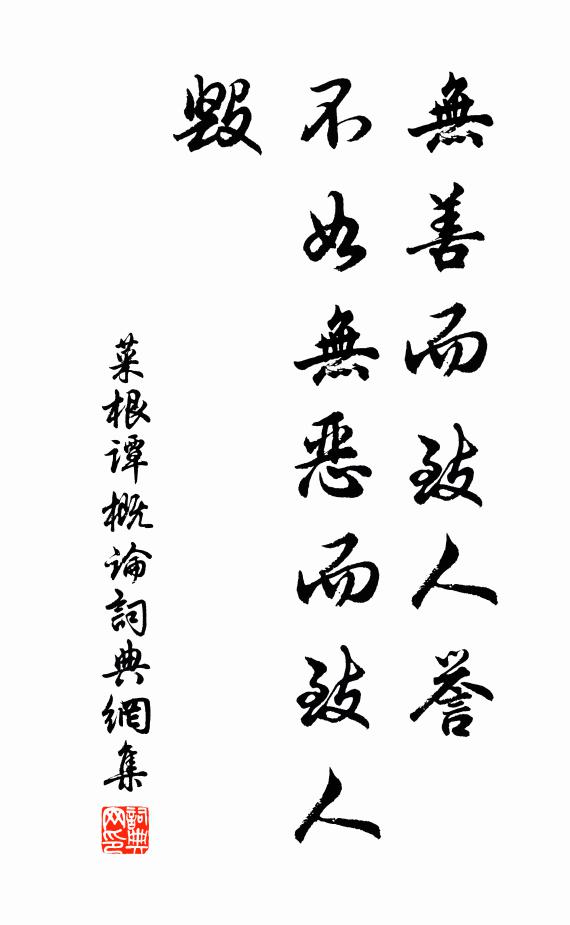 無善而致人誉
不如無惡而致人
毀
菜根谭概論詞典網集
詞典
网印